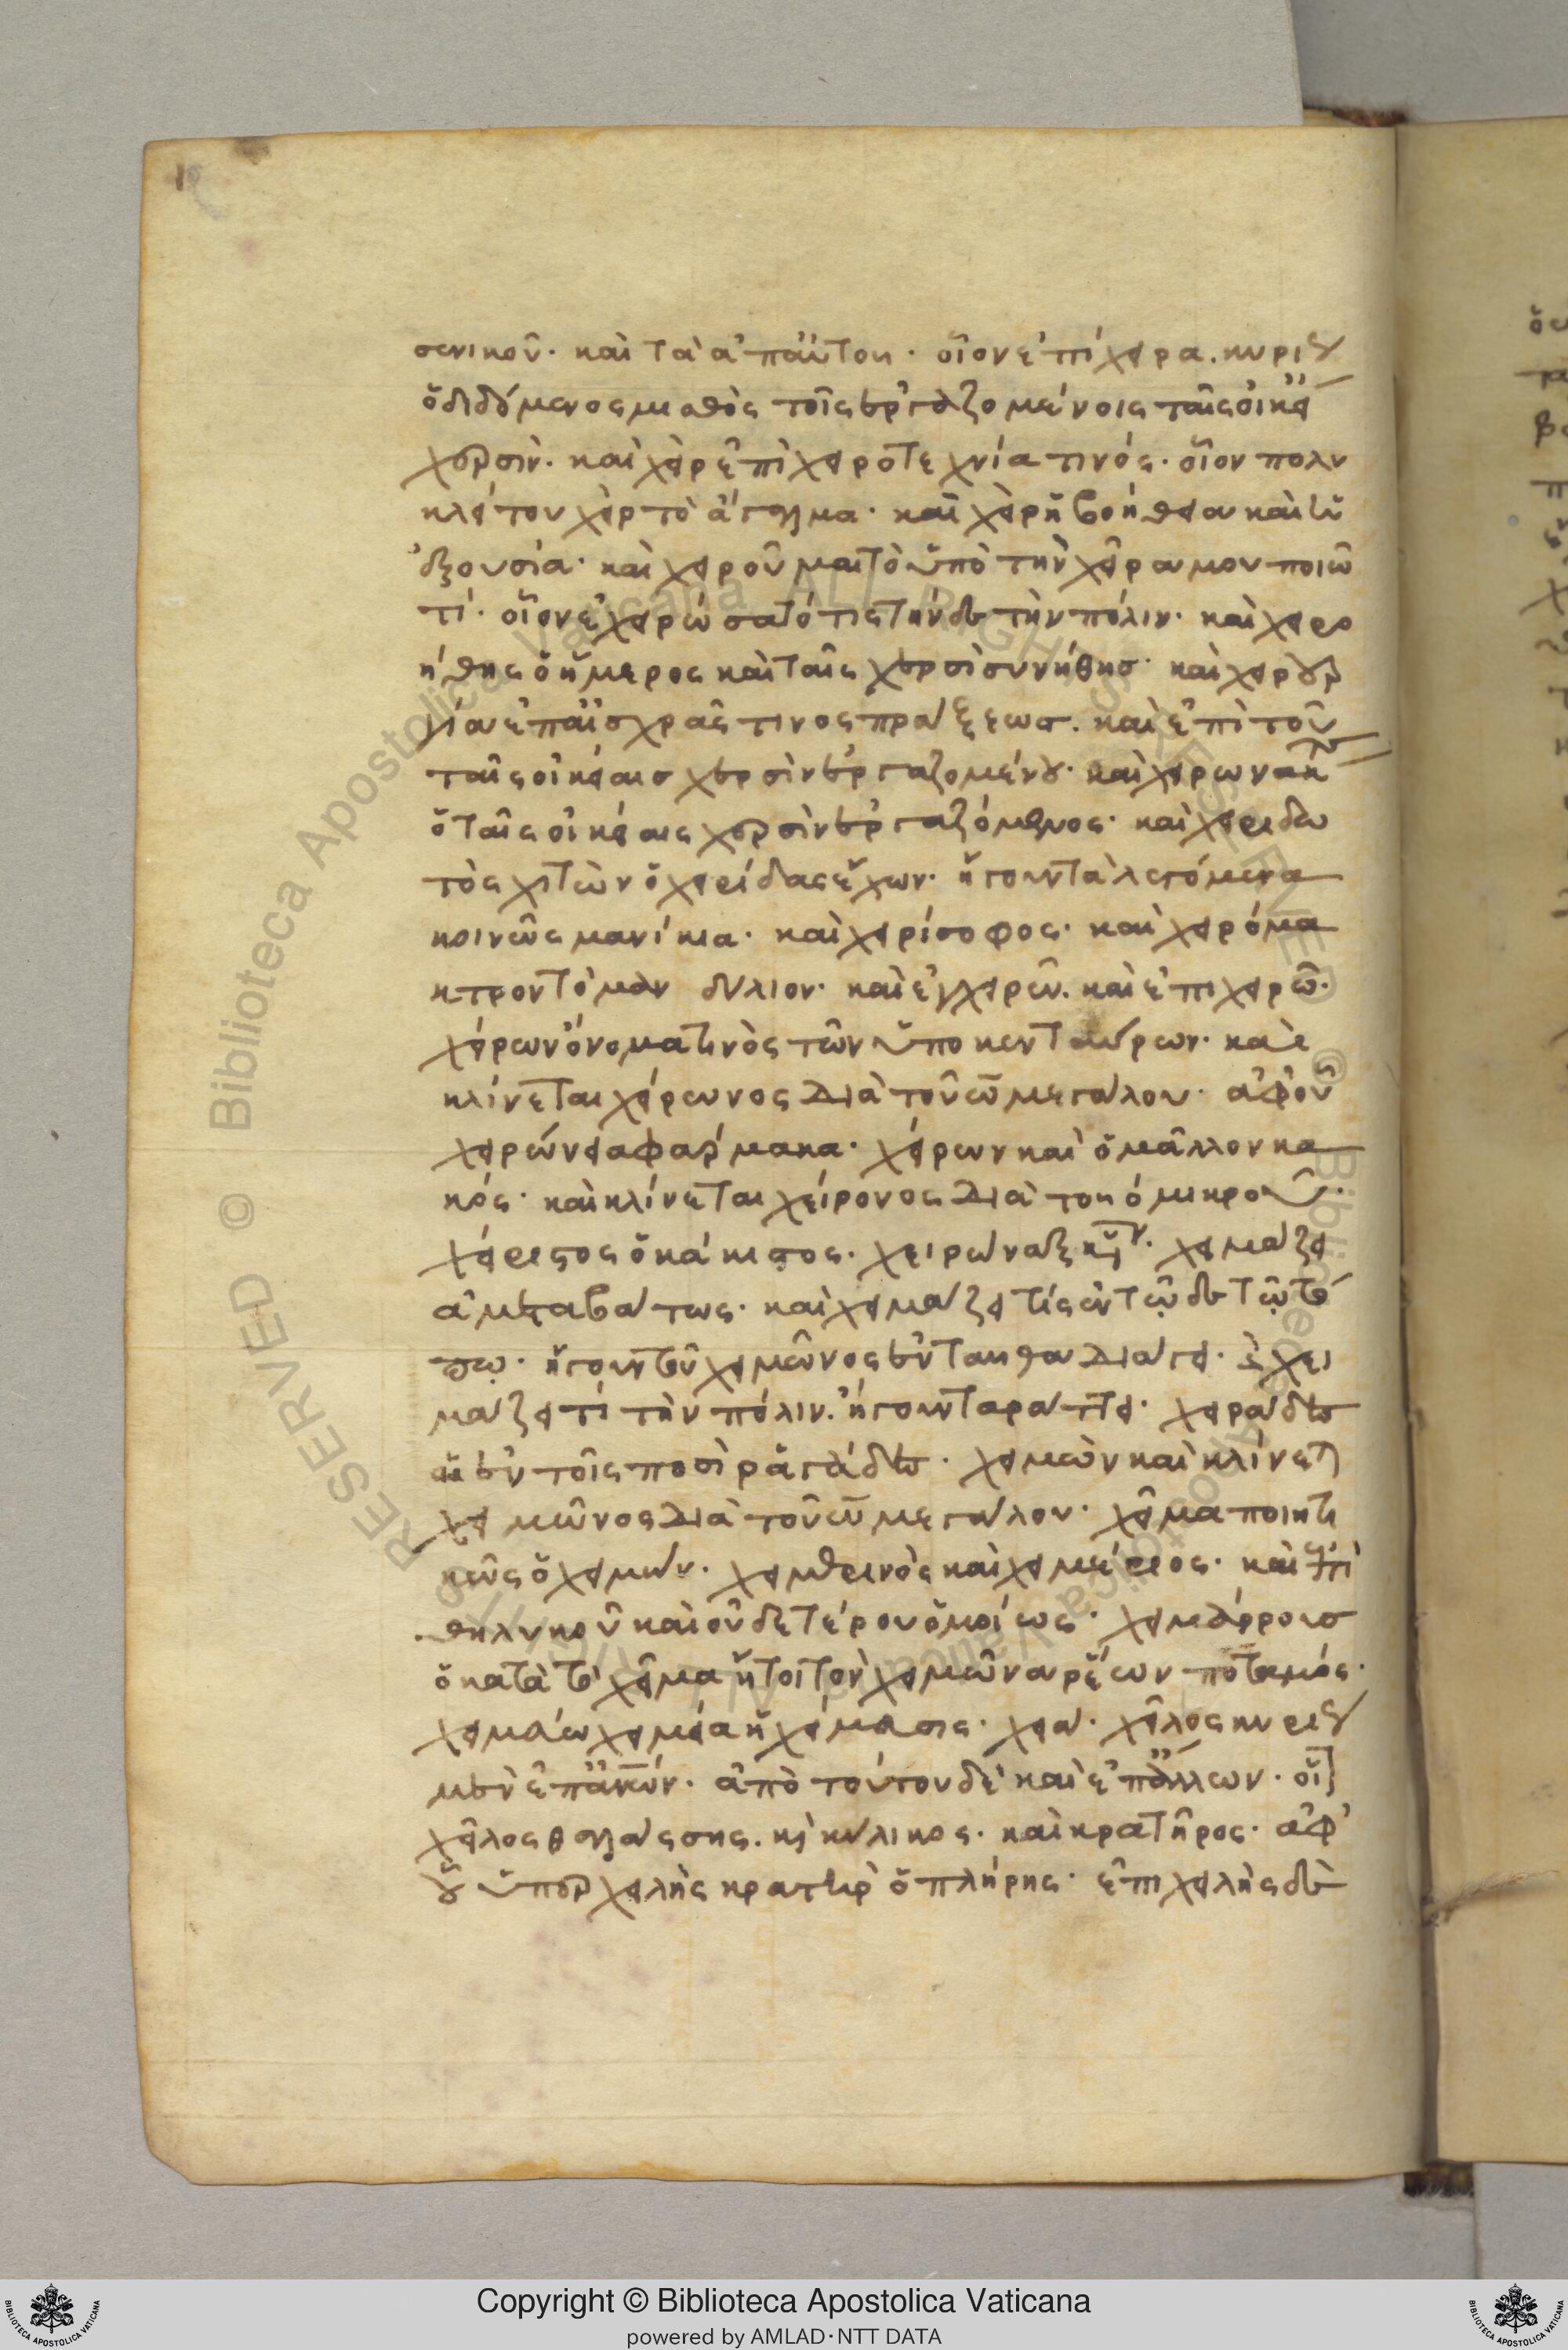 σενικοῦ· καὶ τὰ ἀπ' αὐτοῦ· οἷον ἐπίχειρα. κυρίως
ὁ διδόμενος μισθὸς τοῖς ἐργαζομένοις ταῖς οἰκείαις
χερσίν· καὶ χεὶρ ἐπὶ χειροτεχνία τινός· οἷον πολυ
κλείτου χεὶρ τὸ ἄγαλμα· καὶ χεὶρ ἡ βοήθεια καὶ ἡ
ἐξουσία· καὶ χειροῦμαι τὸ ὑπὸ τὴν χεῖρα μου ποιῶ
τί· οἷον ἐχειρώσατό τις τήνδε τὴν πόλιν· καὶ χειρο
ήθης ὁ ἥμερος καὶ ταῖς χερσὶ συνήθης· καὶ χειρουρ
γία ἐπ' αἰσχρᾶς τινος πράξεως. καὶ ἐπὶ τοῦ
ταῖς οἰκείαις χερσὶν ἐργαζομένου· καὶ χειρωνακτ
ὁ ταῖς οἰκείαις χερσὶν ἐργαζόμενος· καὶ χειριδω
τὸς χιτὼν ὁ χειρίδας ἔχων· ἤγουν τὰ λεγόμενα
κοινῶς μανίκια· καὶ χειρίσοφος· καὶ χειρόμα
κτρον τὸ μανδύλιον· καὶ ἐγχειρῶ. καὶ ἐπιχειρῶ·
χείρων ὄνομα τινὸς τῶν ὑποκενταύρων· καὶ
κλίνεται χείρωνος διὰ τοῦ ω μεγάλου· ἀφ' οὗ
χειρώνεια φάρμακα· χείρων καὶ ὁ μᾶλλον κα
κός· καὶ κλίνεται χείρονος διὰ τοῦ ο μικροῦ·
χείριστος ὁ κάκιστος· χειρώναξ κτ· χειμάζει
ἀμεταβάτως· καὶ χειμάζει τίς ἐν τῷδε τῷ τό
πῳ· ἤγουν τοῦ χειμῶνος ἐνταῦθα διάγει· ἐχει
μάζει τί τὴν πόλιν. ἤγουν ταράττει· χειράδες
αἱ ἐν τοῖς ποσὶ ῥαγάδες· χειμὼν καὶ κλίνεται
χειμῶνος διὰ τοῦ ω μεγάλου· χεῖμα ποιητι
κῶς ὁ χειμών· χειμερινὸς καὶ χειμέριος· καὶ ἐπὶ
θηλυκοῦ καὶ οὐδετέρου ὁμοίως· χειμάρρους
ὁ κατὰ τὸ χεῖμα ἤτοι τὸν χειμῶνα ῥέων ποταμός·
χειμάω χειμεία ἡ χείμασις· χειά· χεῖλος κυρίως
μὲν ἐπ' ἀνων· ἀπὸ τούτου δὲ καὶ ἐπ' ἄλλων· οἷον
χεῖλος θαλάσσης. καὶ κύλικος· καὶ κρατῆρος· ἀφ'
οὗ ὑπερχειλὴς κρατὴρ ὁ πλήρης· ἐπιχειλὴς δὲ